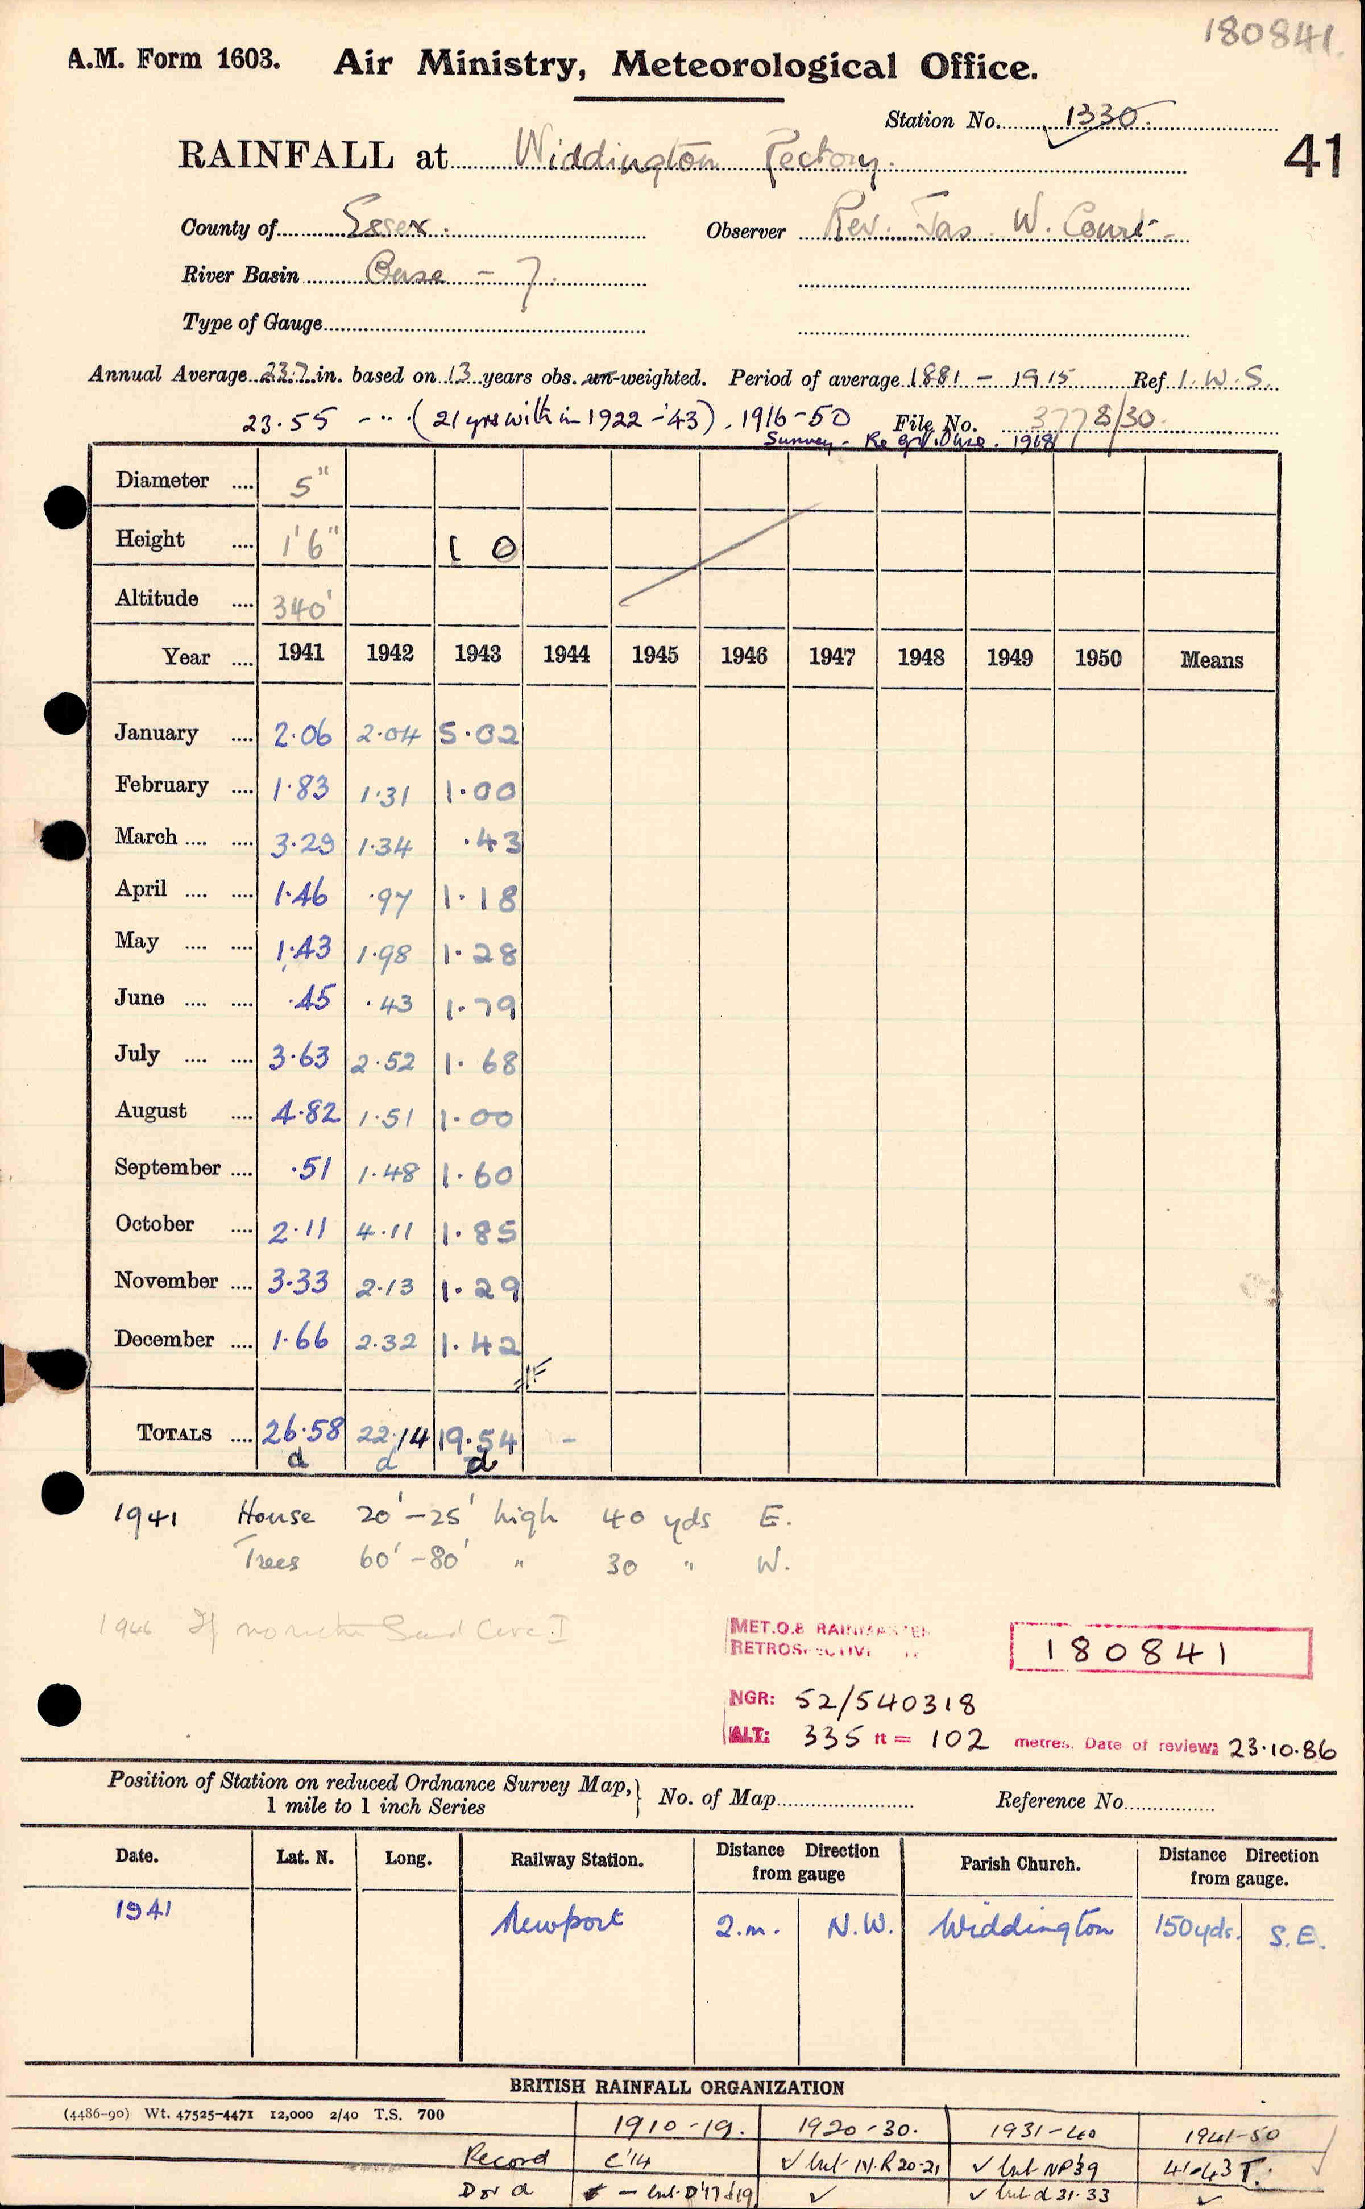 180841.
A.M. Form 1603. Air Ministry, Meteorological Office.
Station No. 1330.
RAINFALL at Widdington Rectory. 41
County of Essex. Observer Rev. Jas. W. Court
River Basin Ouse - 7.
Type of Gauge
Annual Average 23.7 in. based on 13 years obs. un-weighted. Period of average 1881 - 1915 Ref I.W.S.
23.55 -- (21 yrs within 1922-'43), 1916-50 File No. 3778/30.
Survey - 1968
Diameter .... 5"
Height .... 1'6" 1 0
Altitude .... 340'
Year .... 1941 1942 1943 1944 1945 1946 1947 1948 1949 1950 Means
January .... 2.06 2.04 5.02
February .... 1.83 1.31 1.00
March .... .... 3.29 1.34 .43
April .... .... 1.46 .97 1.18
May .... .... 1.43 1.98 1.28
June .... .... .45 .43 1.79
July .... .... 3.63 2.52 1.68
August .... 4.82 1.51 1.00
September .... .51 1.48 1.60
October .... 2.11 4.11 1.85
November .... 3.33 2.13 1.29
December .... 1.66 2.32 1.42
TOTALS .... 26.58 22.14 19.54 -
d d d
1941 House 20'-25' high 40 yds E.
Trees 60'-80' " 30 " W.
1946 If no
MET.O.8 RAINMASTER
RETROSPECTIVE
180841
NGR: 52/540318
ALT: 335 ft = 102 metres. Date of review: 23.10.86
Position of Station on reduced Ordnance Survey Map,} No. of Map Reference No.
1 mile to 1 inch Series
Date. Lat. N. Long. Railway Station. Distance Direction from gauge Parish Church. Distance Direction from gauge.
1941 Newport 2.m. N.W. Widdington 150yds. S.E.
BRITISH RAINFALL ORGANIZATION
(4486-90) Wt. 47525-4471 12,000 2/40 T.S. 700
1910-19. 1920-30. 1931-40 1941-50
Record c'14 ✓ but N.R 20-21 ✓ but NP'39 41-43 T.
D or d - but D'17 d'19 ✓ ✓ but d 31-33 ✓